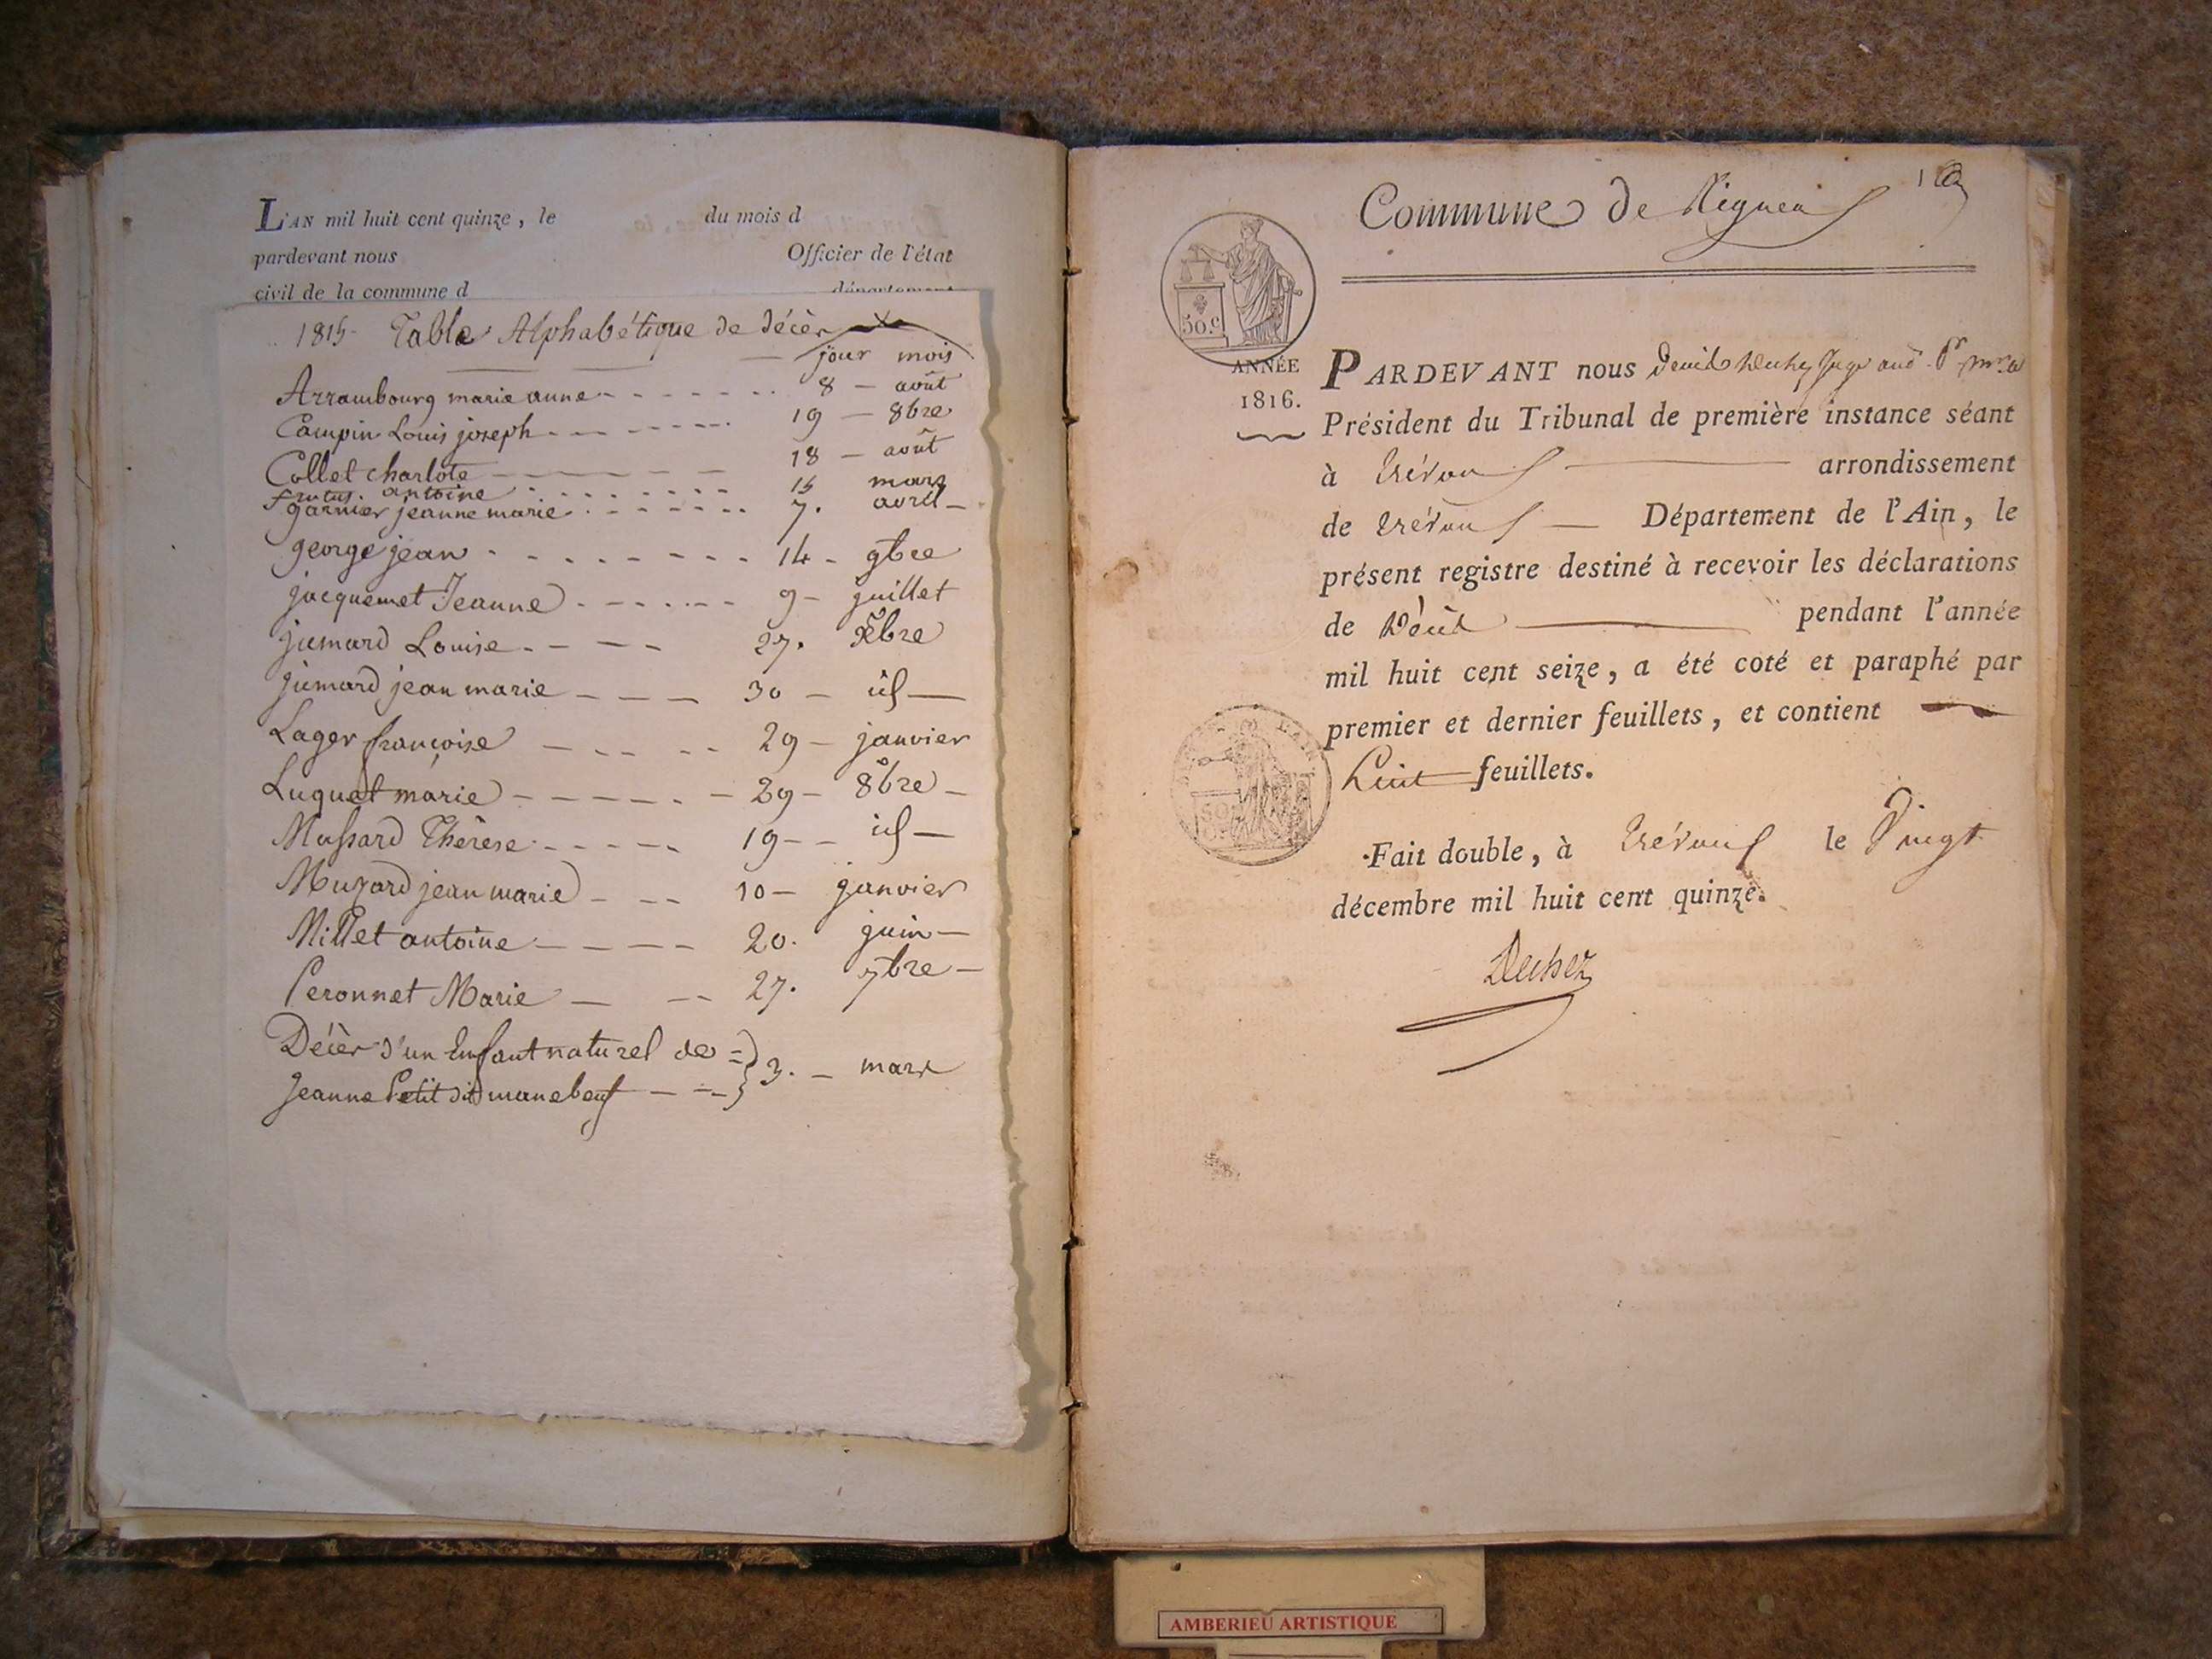 L'AN mil huit cent quinze, le du mois d
pardevant nous Officier de l'état
civil de la commune d département
1815. Table Alphabétique de décès
jour mois
Arrambourg marie anne 8 — août
Campin Louis joseph 19 — 8bre
Collet charlote 18 — août
antoine 15 mars
garnier jeanne marie 7. avril —
george jean 14 - 9bre
jacquemet Jeanne 9 — juillet
jumard Louise 27. Xbre
jumard jean marie 30 — id —
Lager françoise 29 — janvier
Luquet marie 29 — 8bre —
Massard Thérèse 19 — id —
Muzard jean marie 10 — janvier
Millet antoine 20. juin —
Peronnet Marie 27. 7bre —
Décès d'un Enfant naturel de
Jeanne Petit dit manebeuf 3. — mars
Commune de Rigneu
50.c
ANNÉE
1816.
PARDEVANT nous
Président du Tribunal de première instance séant
à Trévoux arrondissement
de Trévoux — Département de l'Ain, le
présent registre destiné à recevoir les déclarations
de Décès pendant l'année
mil huit cent seize, a été coté et paraphé par
premier et dernier feuillets, et contient
huit feuillets.
Fait double, à Trévoux le Vingt
décembre mil huit cent quinze.
AMBERIEU ARTISTIQUE